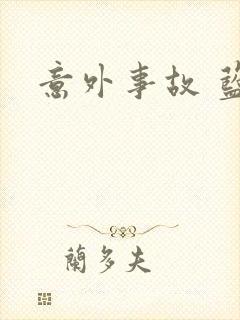 意外事故
蘭多夫